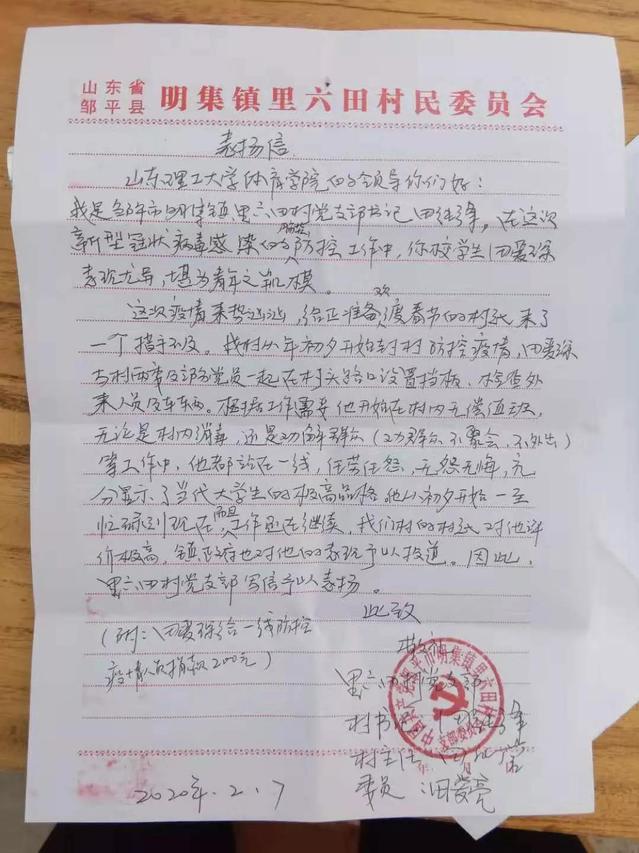 山东省
邹平县
明集镇里六田村民委员会
表扬信
山东理工大学体育学院的领导你们好:
我是邹平市明集镇里六田村党支部书记田 在这次
新型冠状病毒感染的肺炎防控工作中,你校学生田爱琛
表现尤异,堪为青年之楷模。
这次疫情来势汹汹,给正准备欢度春节的村民来了
一个措手不及。我村从年初夕开始封村防控疫情,田爱琛
与村两委及部分党员一起在村头路口设置挡板、检查外
来人员及车辆。根据工作需要他开始在村内无偿值班,
无论是村内消毒,还是劝解群众(劝群众不聚会、不外出)
等工作中,他都站在一线,任劳任怨,无怨无悔,充
分显示了当代大学生的极高品格。他从初夕开始一至
忙碌到现在,而且工作还在继续,我们村的村民对他评
价极高,镇政府也对他的表现予以报道。因此,
里六田村党支部写信予以表扬。
此致
敬礼
(附:田爱琛给一线防控
疫情人员捐款200元)
里六田村党支部
村书记 田
村主任 田
委员 田爱亮
2020年.2.7
中国共产党邹平市明集镇里六田村
支部委员会